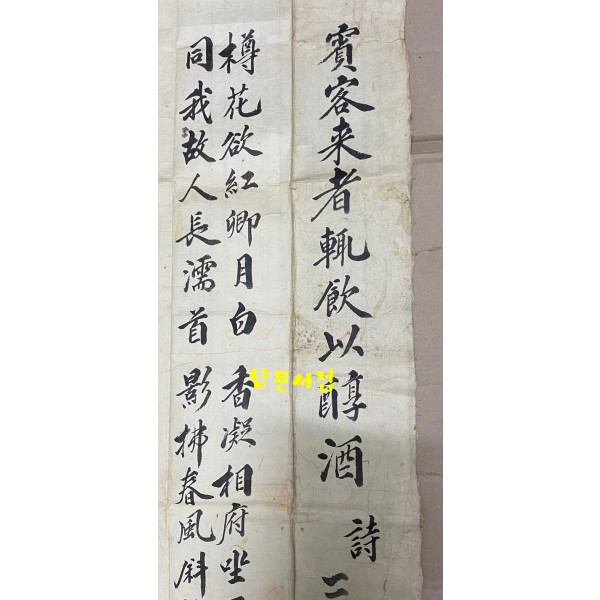 賓客来者輒飲以醇酒
詩
樽花欲紅卿月白 香凝相府坐
同我故人長濡首 影拂春風斜
남문서점